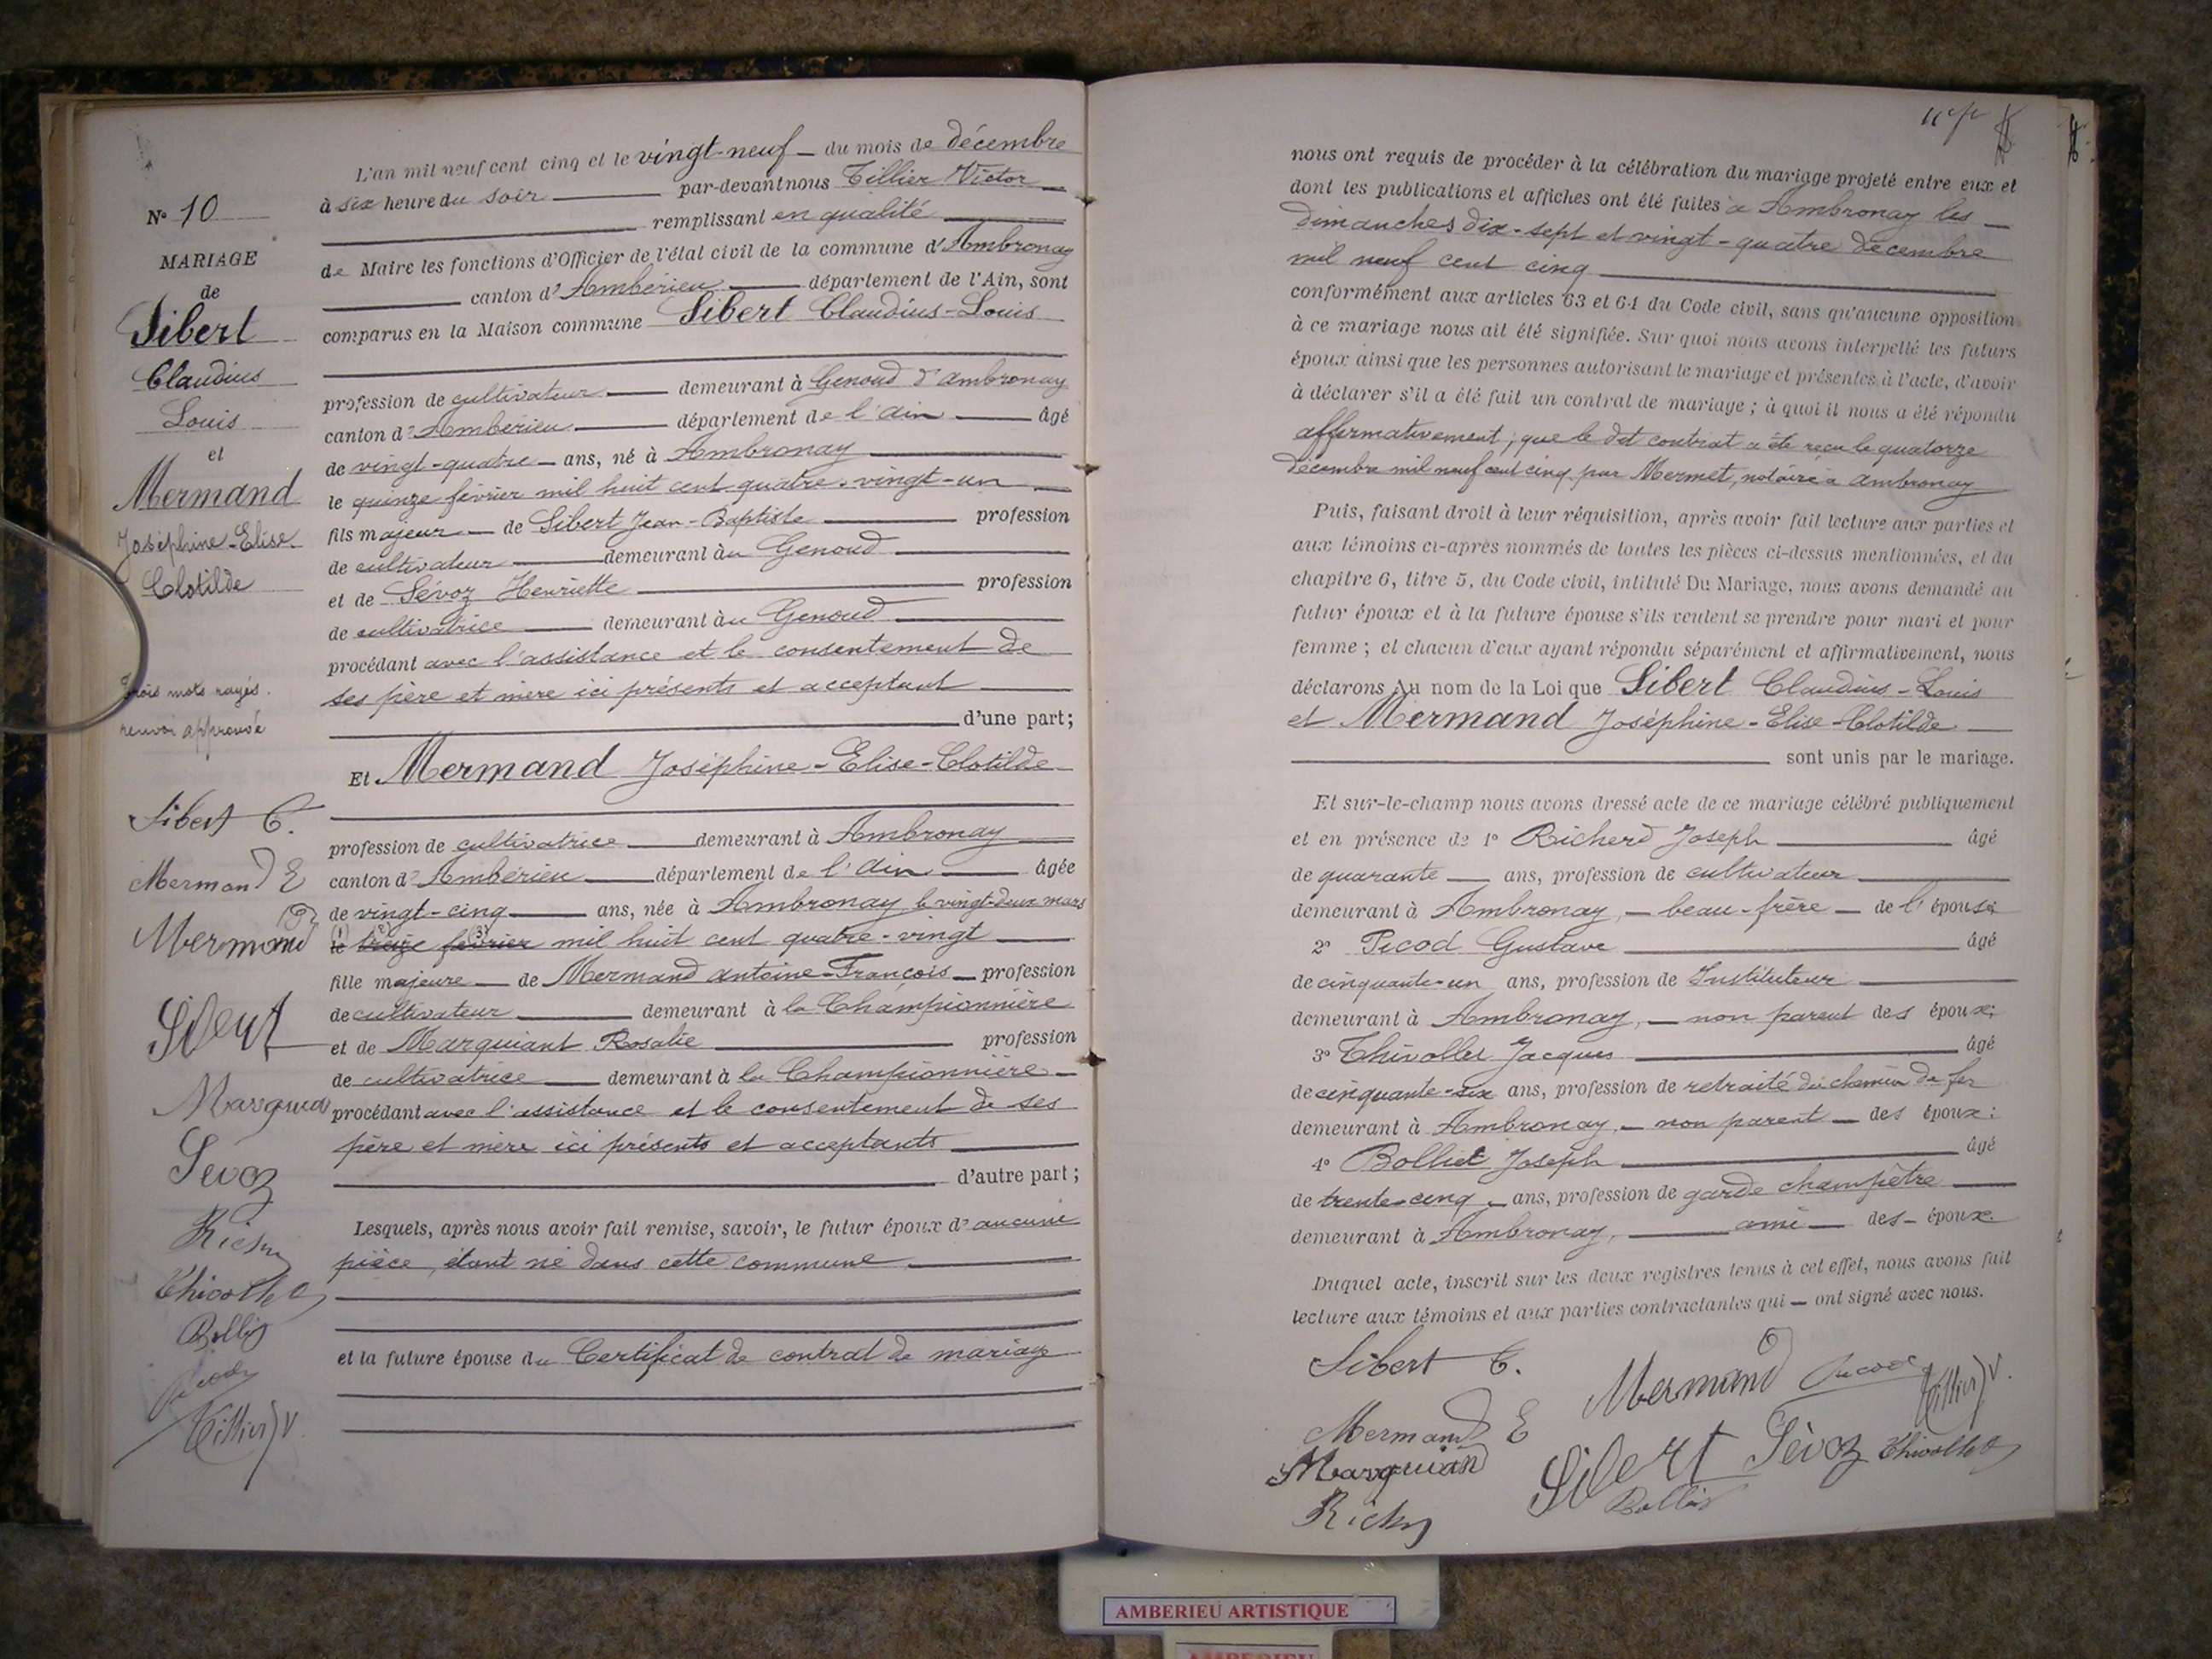 N° 10
MARIAGE
de
Sibert
Claudius
Louis
et
Mermand
Joséphine-Elise
Clotilde
Trois mots rayés.
renvoi approuvé
Sibert C.
Mermand E
Mermand
Sibert
Sévoz
Thivollet
Tillier V
L'an mil neuf cent cinq et le vingt-neuf du mois de décembre
à six heure du soir par-devant nous Tillier Victor
remplissant en qualité
de Maire les fonctions d'Officier de l'état civil de la commune d'Ambronay
canton d'Ambérieu département de l'Ain, sont
comparus en la Maison commune Sibert Claudius-Louis
profession de cultivateur demeurant à Genoud d'ambronay
canton d'Ambérieu département de l'ain âgé
de vingt-quatre ans, né à Ambronay
le quinze février mil huit cent quatre-vingt-un
fils majeur de Sibert Jean-Baptiste profession
de cultivateur demeurant àu Genoud
et de Sévoz Henriette profession
de cultivatrice demeurant àu Genoud
procédant avec l'assistance et le consentement de
ses père et mère ici présents et acceptant
d'une part;
Et Mermand Joséphine-Elise-Clotilde
profession de cultivatrice demeurant à Ambronay
canton d'Ambérieu département de l'ain âgée
de vingt-cinq ans, née à Ambronay le vingt-deux mars
(1) le (2) treize (3) février mil huit cent quatre-vingt
fille majeure de Mermand antoine-François profession
de cultivateur demeurant à la Championnière
et de Marquiant Rosalie profession
de cultivatrice demeurant à la Championnière
procédant avec l'assistance et le consentement de ses
père et mère ici présents et acceptants
d'autre part;
Lesquels, après nous avoir fait remise, savoir, le futur époux d'aucune
pièce, étant né dans cette commune
et la future épouse du Certificat de contrat de mariage
nous ont requis de procéder à la célébration du mariage projeté entre eux et
dont les publications et affiches ont été faites à Ambronay les
dimanches dix-sept et vingt-quatre décembre
mil neuf cent cinq
conformément aux articles 63 et 64 du Code civil, sans qu'aucune opposition
à ce mariage nous ait été signifiée. Sur quoi nous avons interpellé les futurs
époux ainsi que les personnes autorisant le mariage et présentes à l'acte, d'avoir
à déclarer s'il a été fait un contrat de mariage; à quoi il nous a été répondu
affirmativement; que le dit contrat a été reçu le quatorze
décembre mil neuf cent cinq par Mermet, notaire à ambronay
Puis, faisant droit à leur réquisition, après avoir fait lecture aux parties et
aux témoins ci-après nommés de toutes les pièces ci-dessus mentionnées, et du
chapitre 6, titre 5, du Code civil, intitulé Du Mariage, nous avons demandé au
futur époux et à la future épouse s'ils veulent se prendre pour mari et pour
femme; et chacun d'eux ayant répondu séparément et affirmativement, nous
déclarons Au nom de la Loi que Sibert Claudius-Louis
et Mermand Joséphine-Elise-Clotilde
sont unis par le mariage.
Et sur-le-champ nous avons dressé acte de ce mariage célébré publiquement
et en présence de 1° Richerd Joseph âgé
de quarante ans, profession de cultivateur
demeurant à Ambronay, beau-frère de l'épouse
2° Picod Gustave âgé
de cinquante-un ans, profession de Instituteur
demeurant à Ambronay, non parent des époux;
3° Thivollet Jacques âgé
de cinquante-six ans, profession de retraité du chemin de fer
demeurant à Ambronay, non parent des époux;
4° Bolliet Joseph âgé
de trente-cinq ans, profession de garde champêtre
demeurant à Ambronay, ami des époux.
Duquel acte, inscrit sur les deux registres tenus à cet effet, nous avons fait
lecture aux témoins et aux parties contractantes qui ont signé avec nous.
Sibert C.
Mermand
Picod
Tillier V.
Mermand E
Marquiand
Sibert
Sévoz
Thivollet
AMBERIEU ARTISTIQUE
AMBERIEU